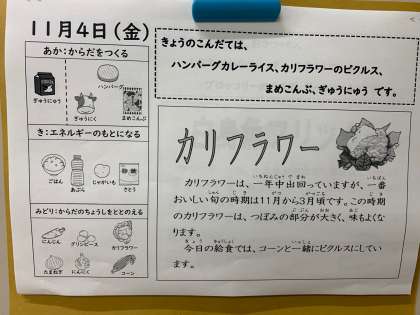 11月4日(金)
あか:からだをつくる
ぎゅうにゅう
ハンバーグ
ぎゅうにく
まめこんぶ
き:エネルギーのもとになる
ごはん
あぶら
じゃがいも
さとう
みどり:からだのちょうしをととのえる
にんじん
グリンピース
カリフラワー
たまねぎ
にんにく
コーン
きょうのこんだては、
ハンバーグカレーライス、カリフラワーのピクルス、
まめこんぶ、ぎゅうにゅう です。
カリフラワー
カリフラワーは、一年中出回っていますが、一番
おいしい旬の時期は11月から3月頃です。この時期
のカリフラワーは、つぼみの部分が大きく、味もよくな
ります。
今日の給食では、コーンと一緒にピクルスにしてい
ます。